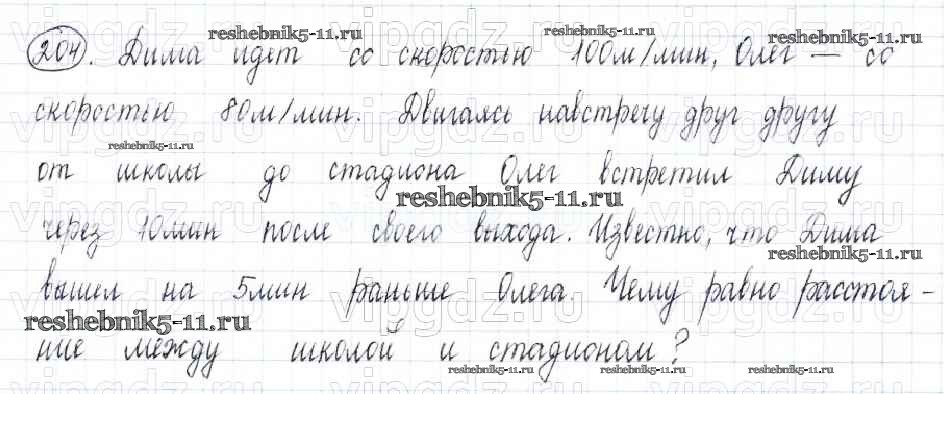 204. Дима идет со скоростью 100м/мин, Олег — со
скоростью 80м/мин. Двигаясь навстречу друг другу
от школы до стадиона Олег встретил Диму
через 10мин после своего выхода. Известно, что Дима
вышел на 5мин раньше Олега. Чему равно расстоя-
ние между школой и стадионом?
reshebnik5-11.ru
reshebnik5-11.ru
reshebnik5-11.ru
reshebnik5-11.ru
reshebnik5-11.ru
reshebnik5-11.ru
reshebnik5-11.ru
reshebnik5-11.ru
reshebnik5-11.ru
vipgdz.ru